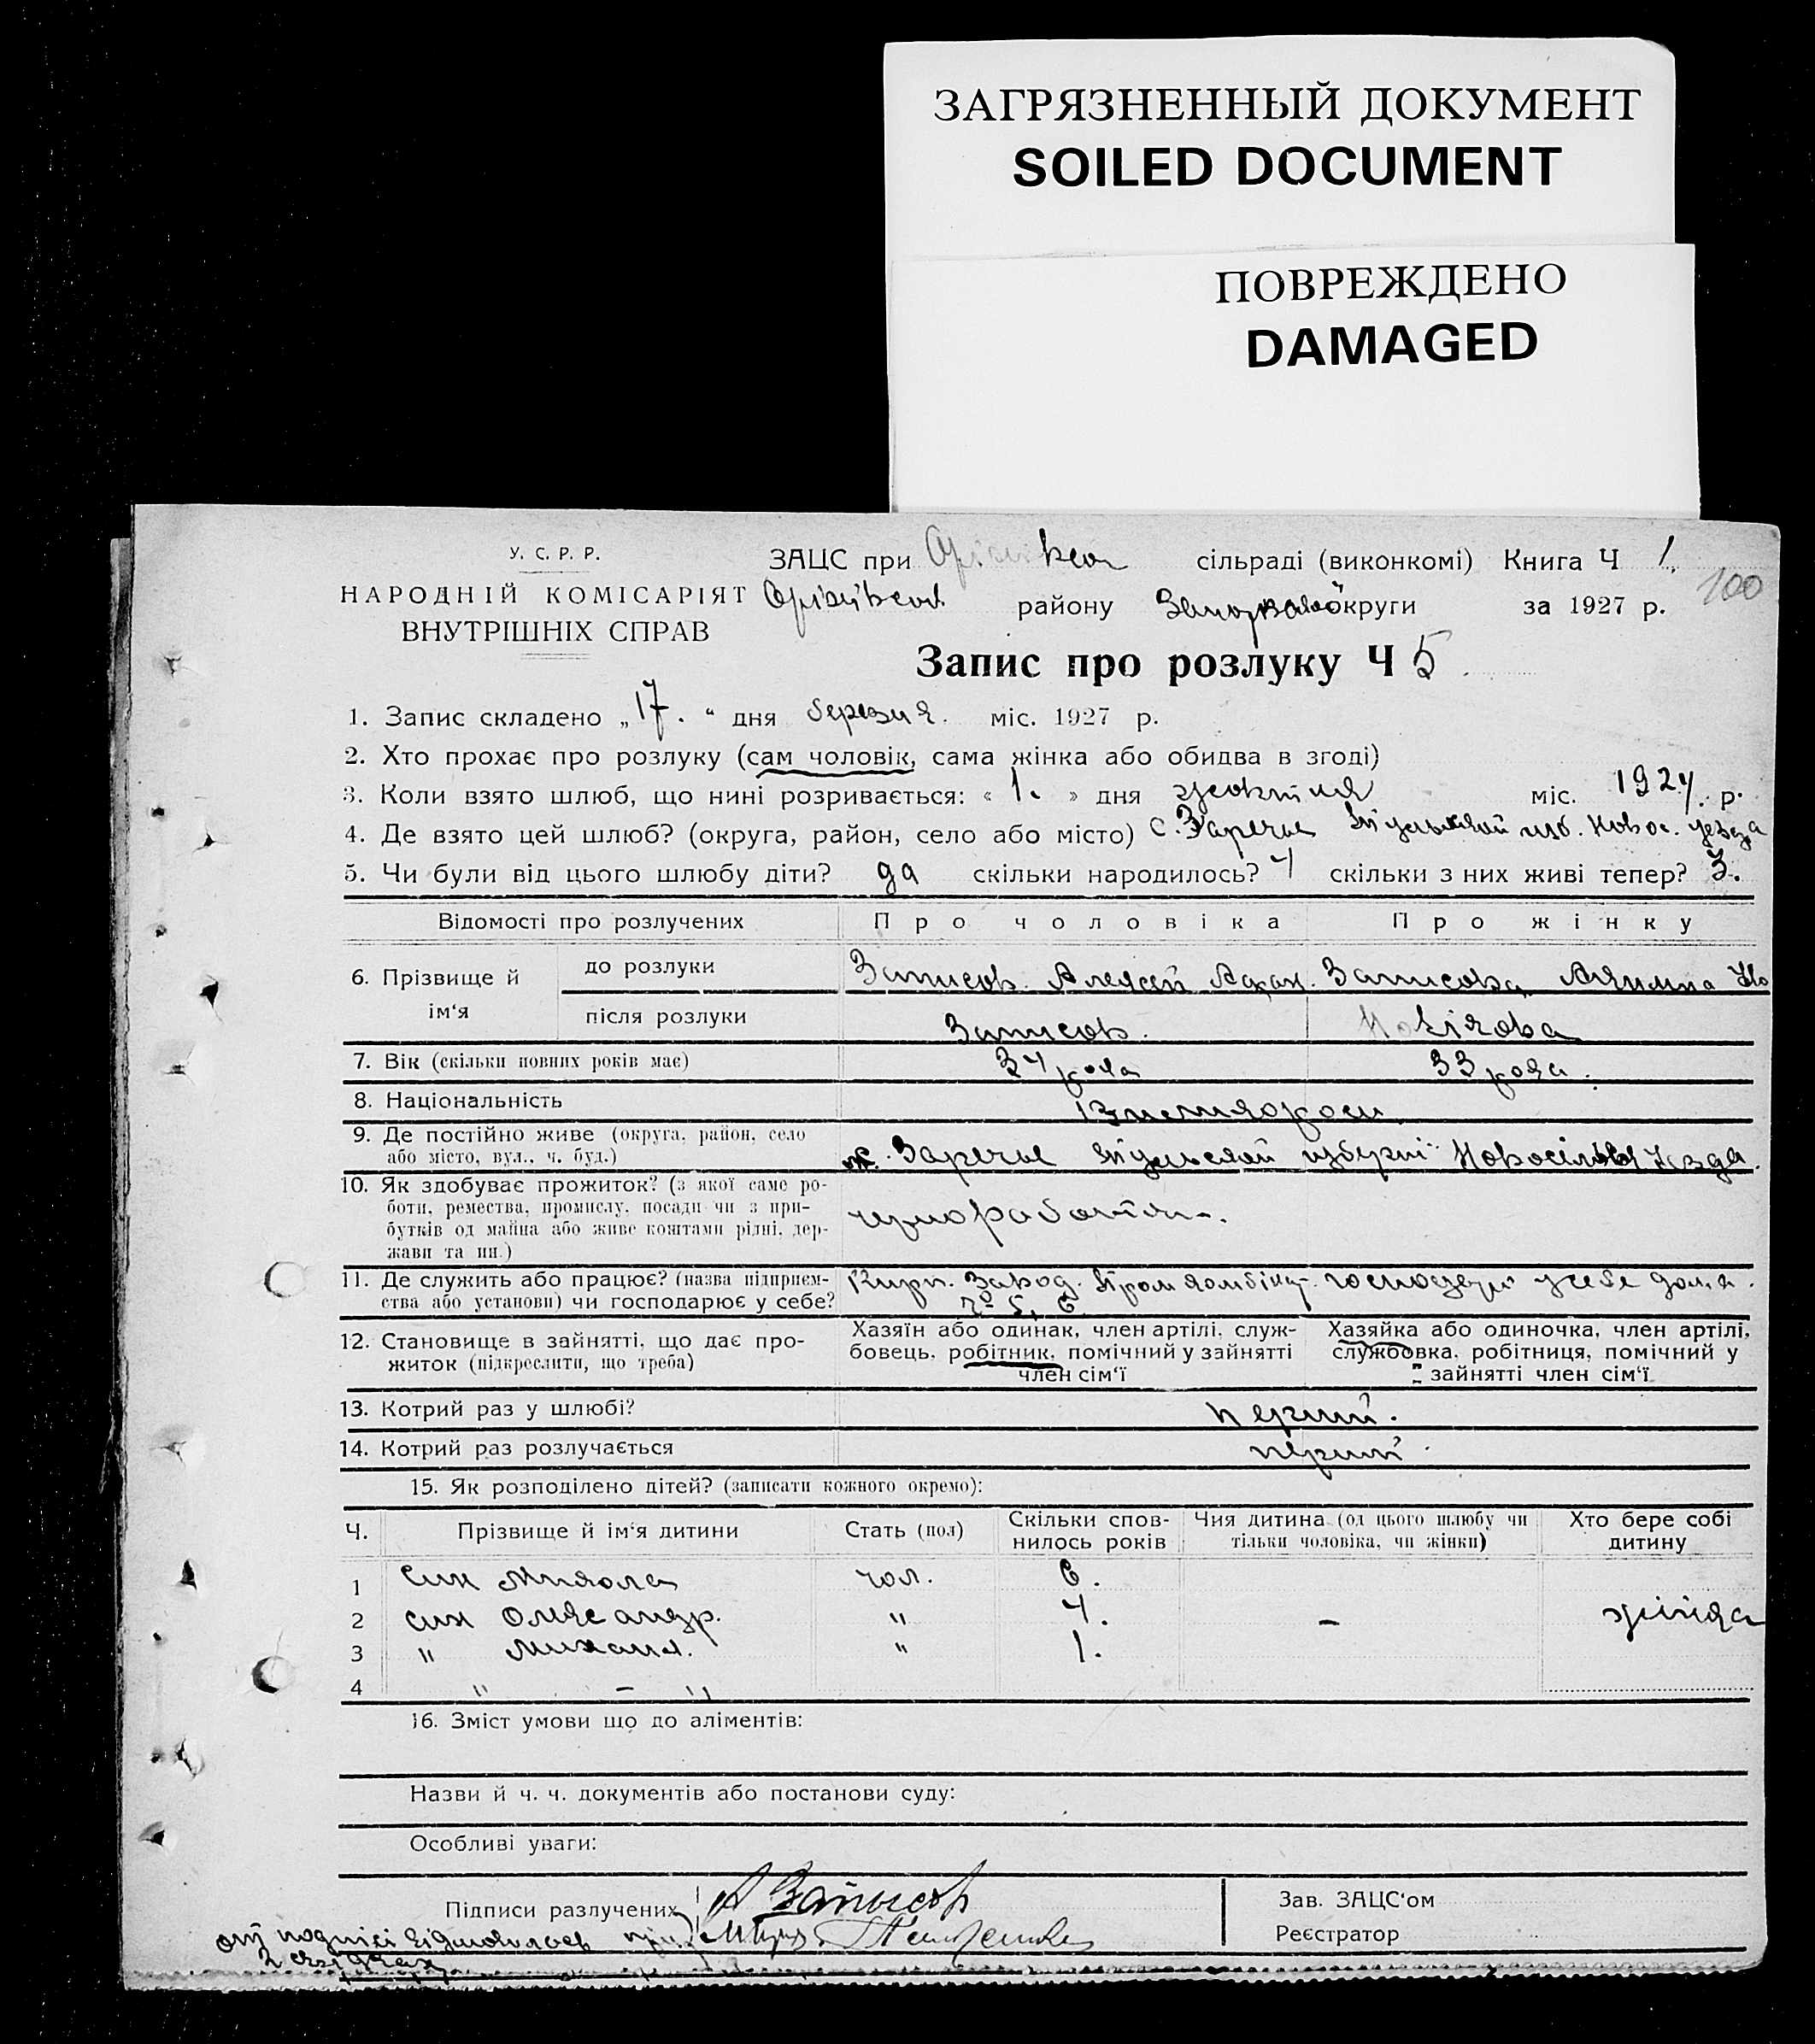 ЗАГРЯЗНЕННЫЙ ДОКУМЕНТ
SOILED DOCUMENT
ПОВРЕЖДЕНО
DAMAGED
У. С. Р. Р.
НАРОДНІЙ КОМІСАРІЯТ
ВНУТРІШНІХ СПРАВ
ЗАЦС при сільраді (виконкомі) Книга Ч 1.
району округи за 1927 р.
100
Запис про розлуку Ч 5
1. Запис складено „17.“ дня березня. міс. 1927 р.
2. Хто прохає про розлуку (сам чоловік, сама жінка або обидва в згоді)
3. Коли взято шлюб, що нині розривається: « 1. » дня жовтня міс. 1924. р.
4. Де взято цей шлюб? (округа, район, село або місто) с. Заречье
5. Чи були від цього шлюбу діти? да скільки народилось? 4 скільки з них живі тепер? 3.
Відомості про розлучених Про чоловіка Про жінку
6. Прізвище й ім‘я
до розлуки Записов. Алексей Записова
після розлуки Записов.
7. Вік (скільки повних років має) 34 рока 33 рока.
8. Національність
9. Де постійно живе (округа, район, село або місто, вул., ч. буд.) Заречье
10. Як здобуває прожиток? (з якої саме роботи, ремества, промислу, посади чи з прибутків од майна або живе коштами рідні, держави та ин.)
11. Де служить або працює? (назва підприємства або установи) чи господарює у себе? Кирп. Завод.
12. Становище в зайнятті, що дає прожиток (підкреслити, що треба)
Хазяїн або одинак, член артілі, службовець, робітник, помічний у зайнятті член сім‘ї
Хазяйка або одиночка, член артілі, службовка, робітниця, помічний у зайнятті член сім‘ї
13. Котрий раз у шлюбі? перший.
14. Котрий раз розлучається перший.
15. Як розподілено дітей? (записати кожного окремо):
Ч. Прізвище й ім‘я дитини Стать (пол) Скільки сповнилось років Чия дитина (од цього шлюбу чи тільки чоловіка, чи жінки) Хто бере собі дитину
1 син Микола чол. 6.
2 син Олександр. " 4. – жінка
3 " Михаил. " 1.
4 " – "
16. Зміст умови що до аліментів:
Назви й ч. ч. документів або постанови суду:
Особливі уваги:
Підписи разлучених А Записов
Зав. ЗАЦС‘ом
Реєстратор